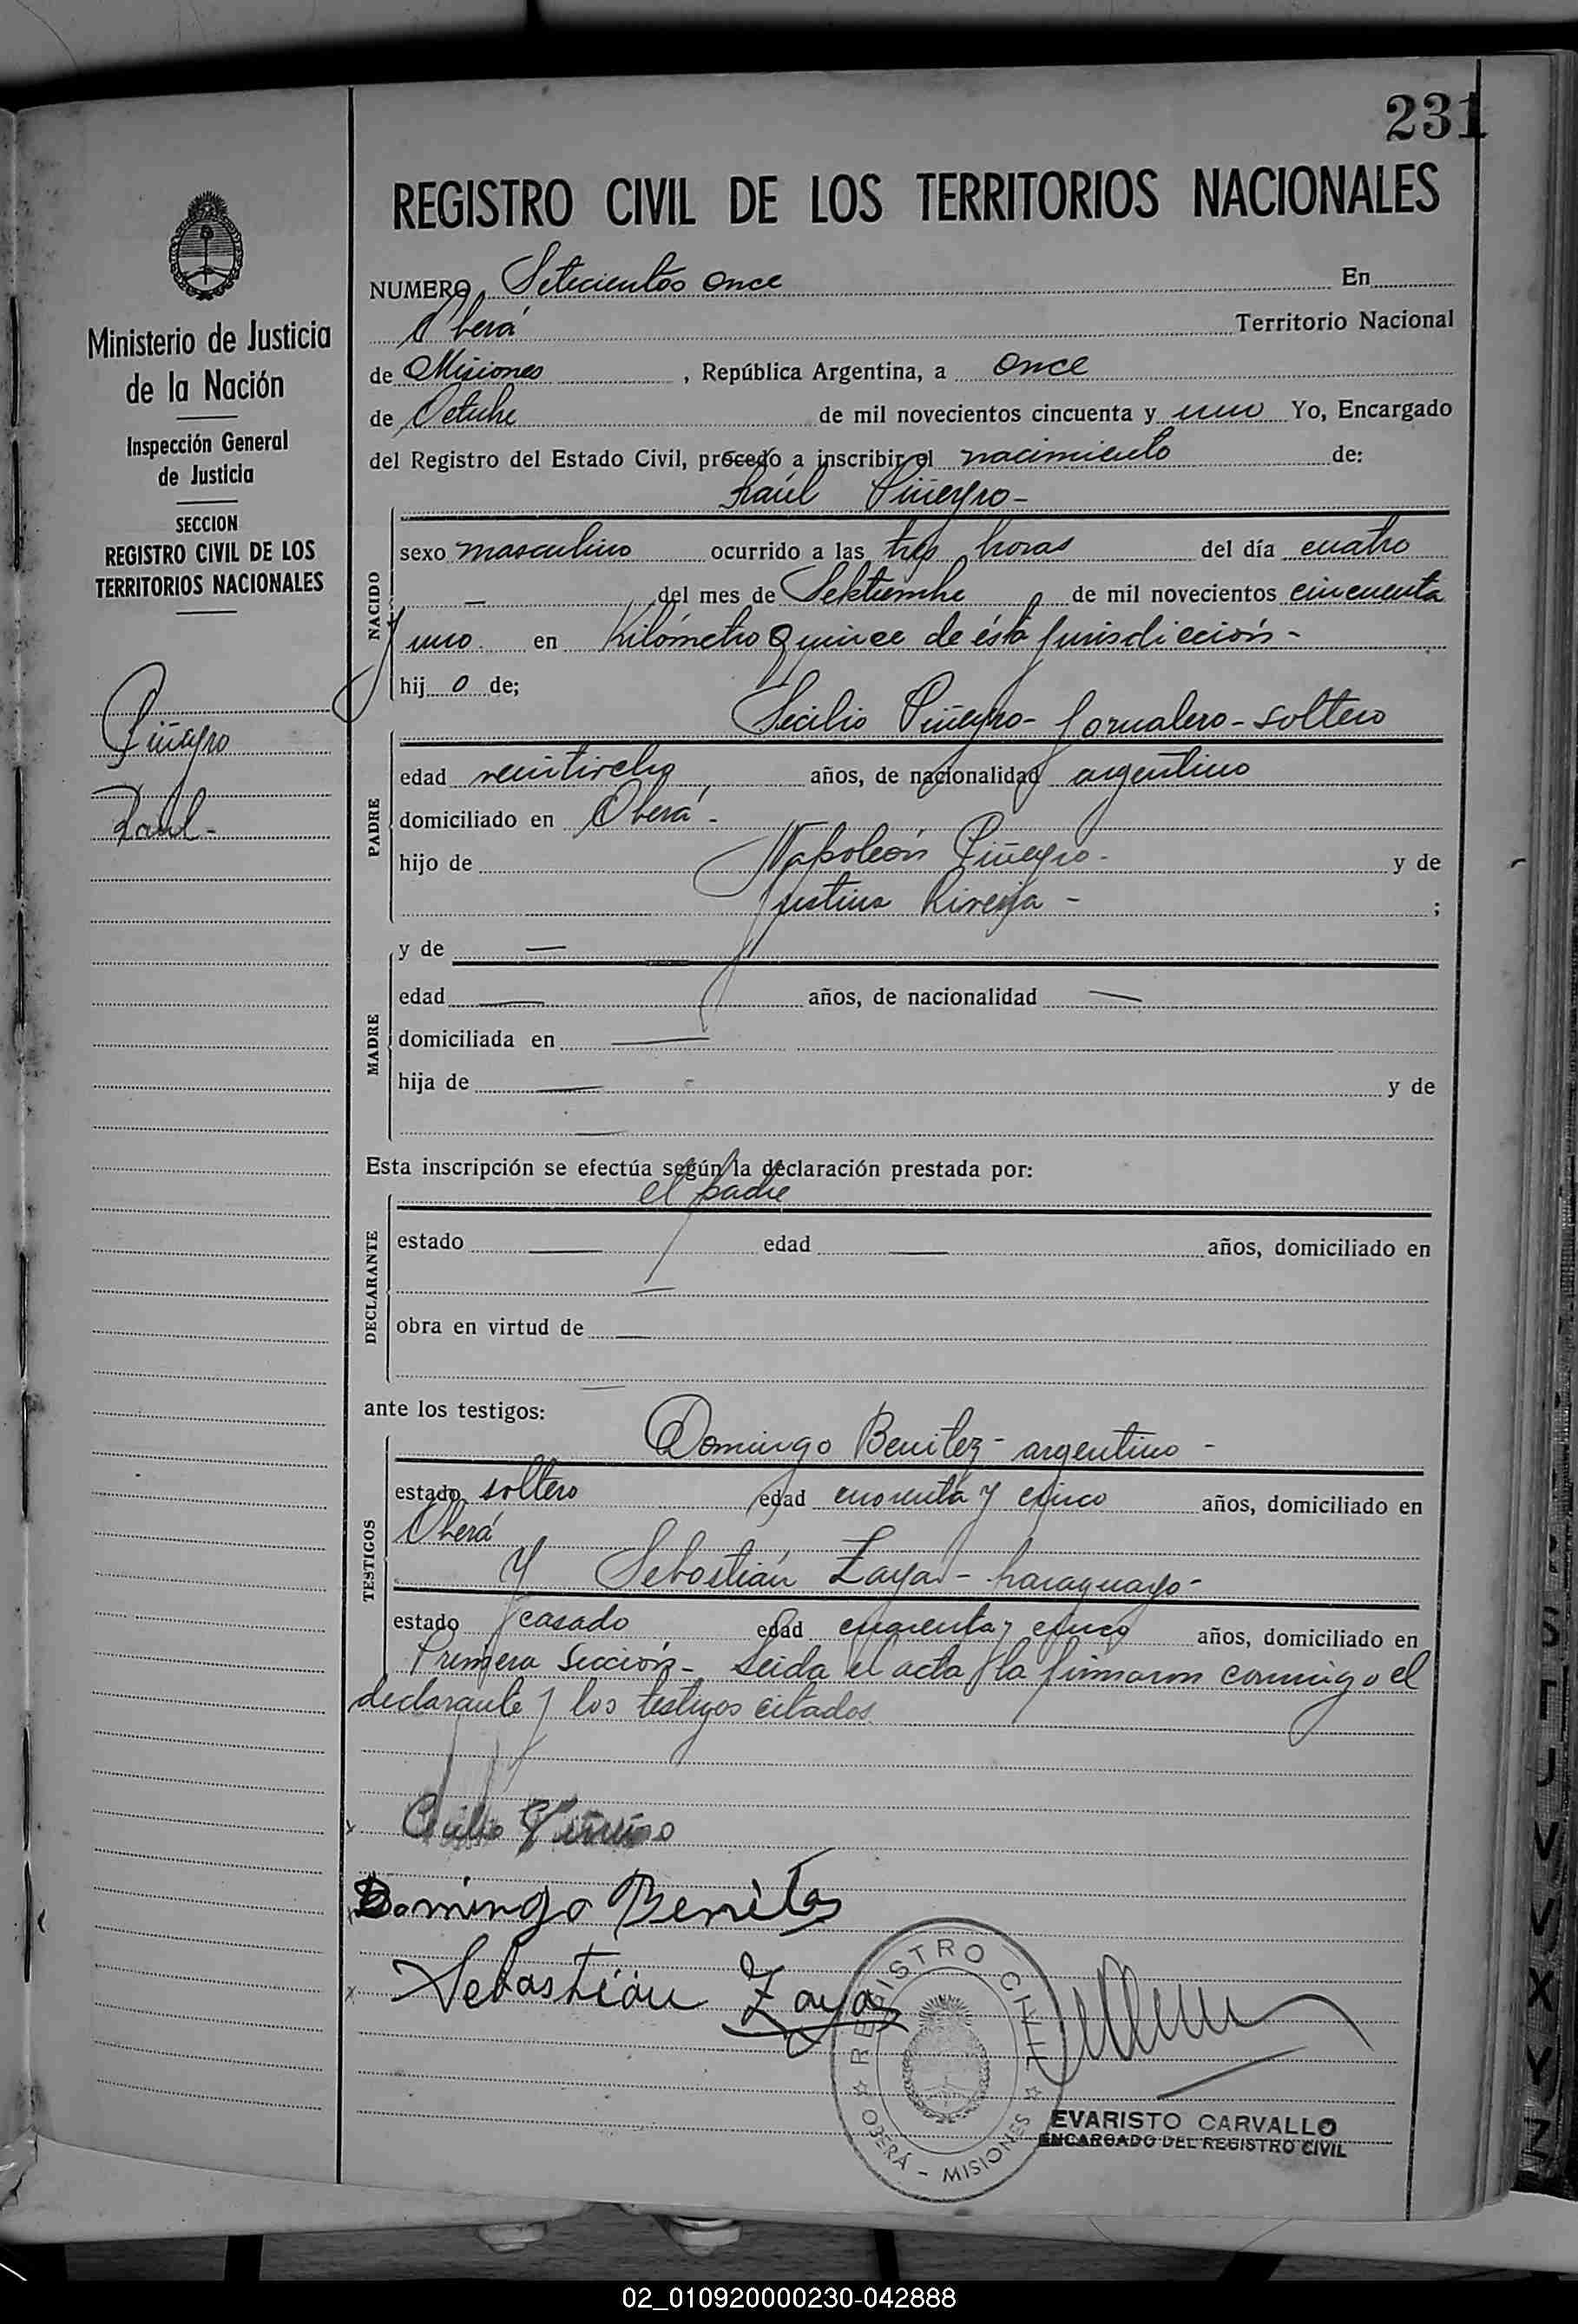 231
REGISTRO CIVIL DE LOS TERRITORIOS NACIONALES
Ministerio de Justicia
de la Nación
Inspección General
de Justicia
SECCION
REGISTRO CIVIL DE LOS
TERRITORIOS NACIONALES
Piñeyro
Raul-
NUMERO Setecientos once En
Oberá Territorio Nacional
de Misiones , República Argentina, a once
de Octubre de mil novecientos cincuenta y uno Yo, Encargado
del Registro del Estado Civil, procedo a inscribir el nacimiento de:
Raúl Piñeyro-
NACIDO
sexo masculino ocurrido a las tres horas del día cuatro
— del mes de Septiembre de mil novecientos cincuenta
y uno en Kilómetro Quince de ésta Jurisdicción-
hij o de;
Secilio Piñeyro- Jornalero- soltero
PADRE
edad veintiocho años, de nacionalidad argentino
domiciliado en Oberá-
hijo de Napoleón Piñeyro- y de
Justina -
;
MADRE
y de —
edad — años, de nacionalidad —
domiciliada en —
hija de — y de
—
Esta inscripción se efectúa según la declaración prestada por:
el padre
DECLARANTE
estado — edad — años, domiciliado en
—
obra en virtud de —
—
ante los testigos:
Domingo Benitez- argentino-
TESTIGOS
estado soltero edad y cinco años, domiciliado en
Oberá
y Sebastián Zayas- paraguayo-
estado casado edad cuarenta y cinco años, domiciliado en
Primera Sección- Leida el acta la firmaron conmigo el
declarante y los testigos citados
Domingo Benites
Sebastián Zayas
REGISTRO CIVIL
OBERÁ - MISIONES
EVARISTO CARVALLO
ENCARGADO DEL REGISTRO CIVIL
S
T
J
V
V
X
Y
Z
02_010920000230-042888